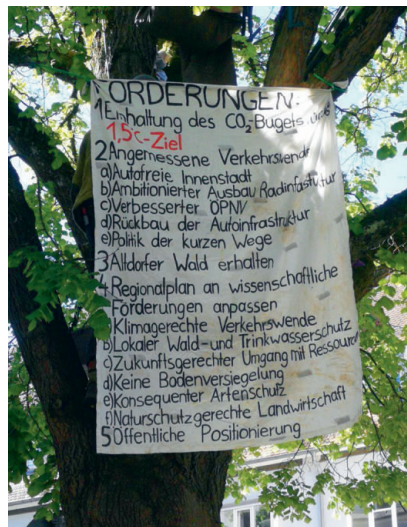 FORDERUNGEN:
1 Einhaltung des CO2-Bugets und
1,5°C-Ziel
2 Angemessene Verkehrswende
a) Autofreie Innenstadt
b) Ambitionierter Ausbau Radinfastuktur
c) Verbesserter ÖPNV
d) Rückbau der Autoinfrastruktur
e) Politik der kurzen Wege
3 Altdorfer Wald erhalten
4 Regionalplan an wissenschaftliche
Forderungen anpassen
Klimagerechte Verkehrswende
b) Lokaler Wald- und Trinkwasserschutz
c) Zukunftsgerechter Umgang mit Ressourcen
d) Keine Bodenversiegelung
e) Konsequenter Artenschutz
f) Naturschutzgerechte Landwirtschaft
5 Öffentliche Positionierung